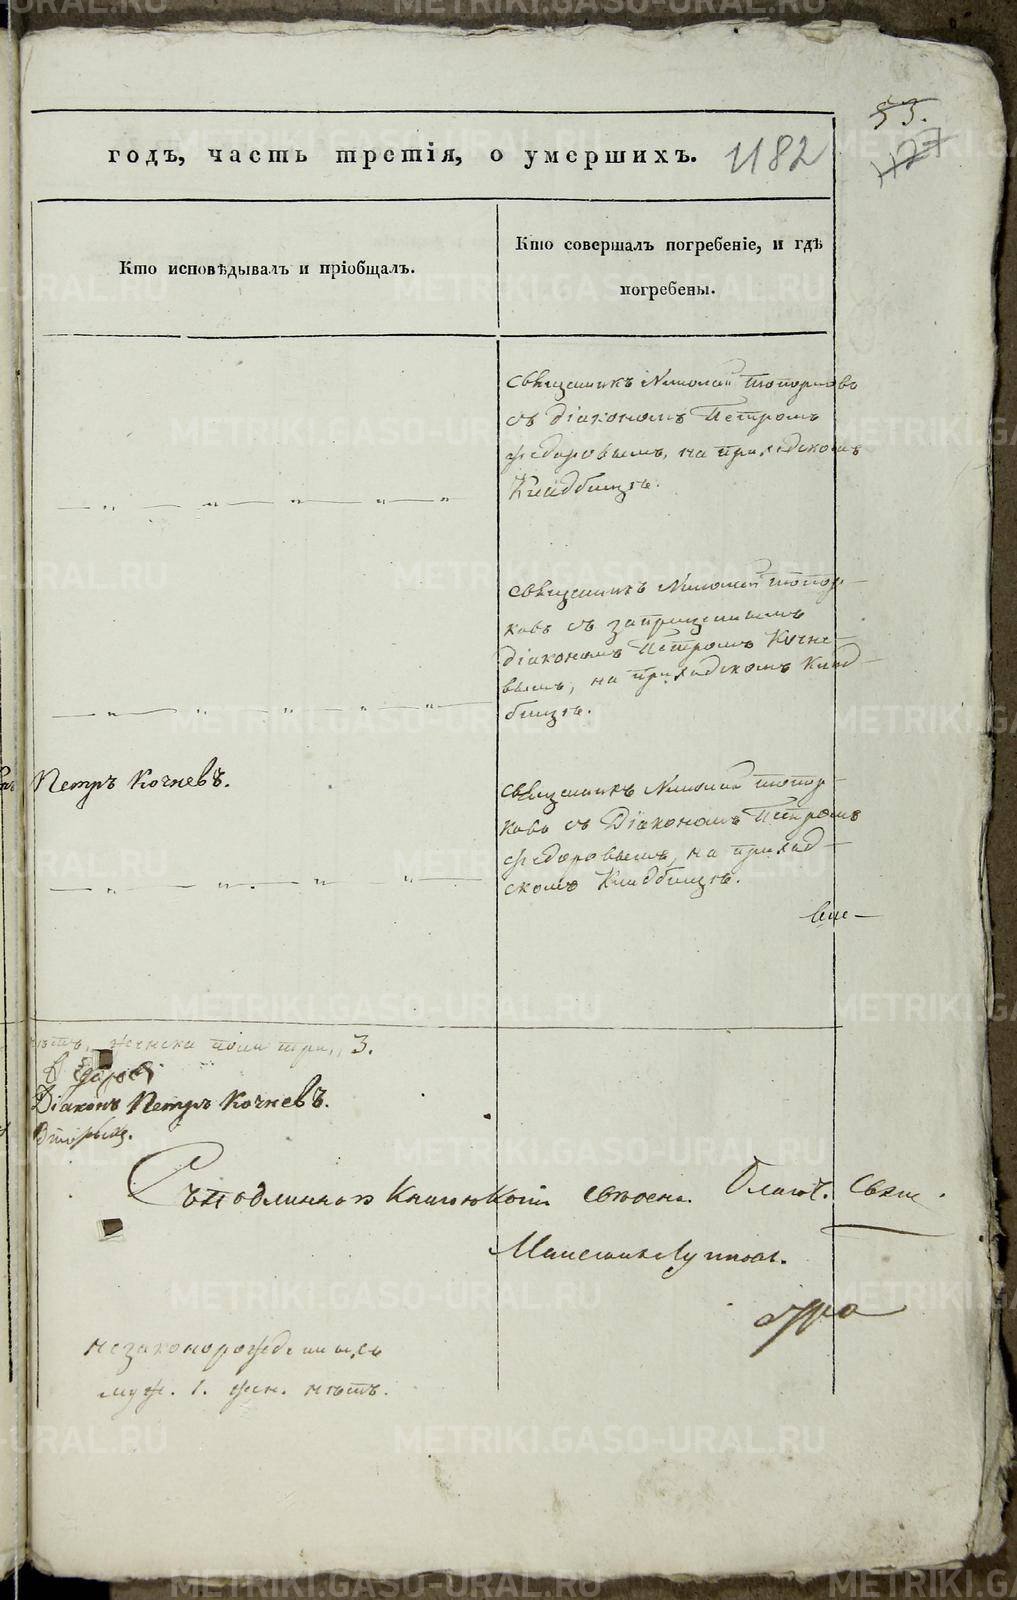 53.
1127
годъ, часть третія, о умершихъ. 1182
Кто исповѣдывалъ и пріобщалъ.
Кто совершалъ погребеніе, и гдѣ
погребены.
Священникъ Николай Топорковъ
съ діакономъ Петромъ
Федоровымъ, на приходскомъ
Кладбищѣ.
Священникъ Николай Топор-
ковъ съ запрещеннымъ
діакономъ Петромъ Кочне-
вымъ, на приходскомъ Клад-
бищѣ.
Петръ Кочневъ.
Священникъ Николай Топор-
ковъ съ Діакономъ Петромъ
Федоровымъ, на приход-
скомъ Кладбищѣ.
женска пола три, 3.
Діаконъ Петръ Кочневъ.
Съ подлинною Книгою Копія Благоч. Свящ.
незаконорожденныхъ
муж. 1. жен. нѣтъ.
METRIKI.GASO-URAL.RU